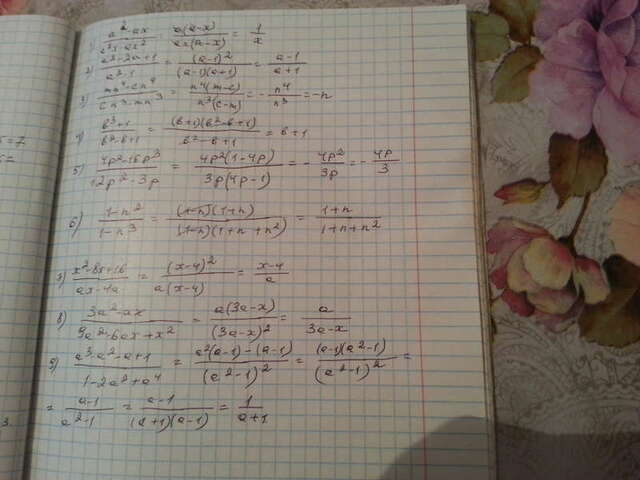 1) (a²-ax)/(a²x-ax²) = a(a-x)/ax(a-x) = 1/x
2) (a²-2a+1)/(a²-1) = (a-1)²/(a-1)(a+1) = (a-1)/(a+1)
3) (mn⁴-cn⁴)/(cn³-mn³) = n⁴(m-c)/n³(c-m) = -n⁴/n³ = -n
4) (b³-1)/(b²-b+1) = (b+1)(b²-b+1)/(b²-b+1) = b+1
5) (4p²-16p³)/(12p²-3p) = 4p²(1-4p)/3p(4p-1) = -4p²/3p = -4p/3
6) (1-n²)/(1-n³) = (1-n)(1+n)/(1-n)(1+n+n²) = (1+n)/(1+n+n²)
7) (x²-8x+16)/(ax-4a) = (x-4)²/a(x-4) = (x-4)/a
8) (3a²-ax)/(9a²-6ax+x²) = a(3a-x)/(3a-x)² = a/(3a-x)
9) (a³-a²-a+1)/(1-2a²+a⁴) = (a²(a-1)-(a-1))/(a²-1)² = (a-1)(a²-1)/(a²-1)² =
= (a-1)/(a²-1) = (a-1)/(a+1)(a-1) = 1/(a+1)